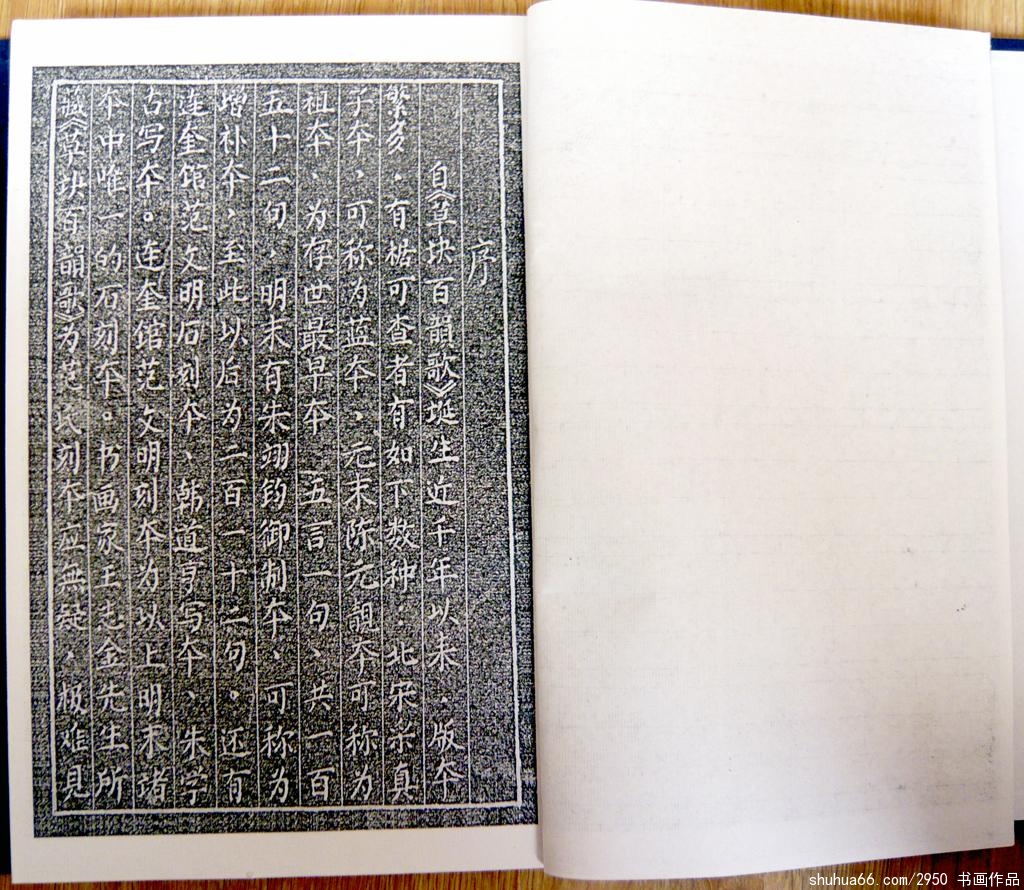 序
自《草诀百韻歌》诞生近千年以来，版本
繁多，有据可查者有如下数种：北宋米真
子本，可称为蓝本，元末陈元靓本可称为
祖本、为存世最早本 五言一句、共一百
五十二句，明末有朱翊钧御制本、可称为
增补本，至此以后为二百一十二句。还有
连奎馆范文明石刻本、韩道亨写本、朱学
古写本。连奎馆范文明刻本为以上明末诸
本中唯一的石刻本。书画家王志金先生所
藏《草诀百韻歌》为范氏刻本应無疑，极难見
shuhua66.com/2950 书画作品